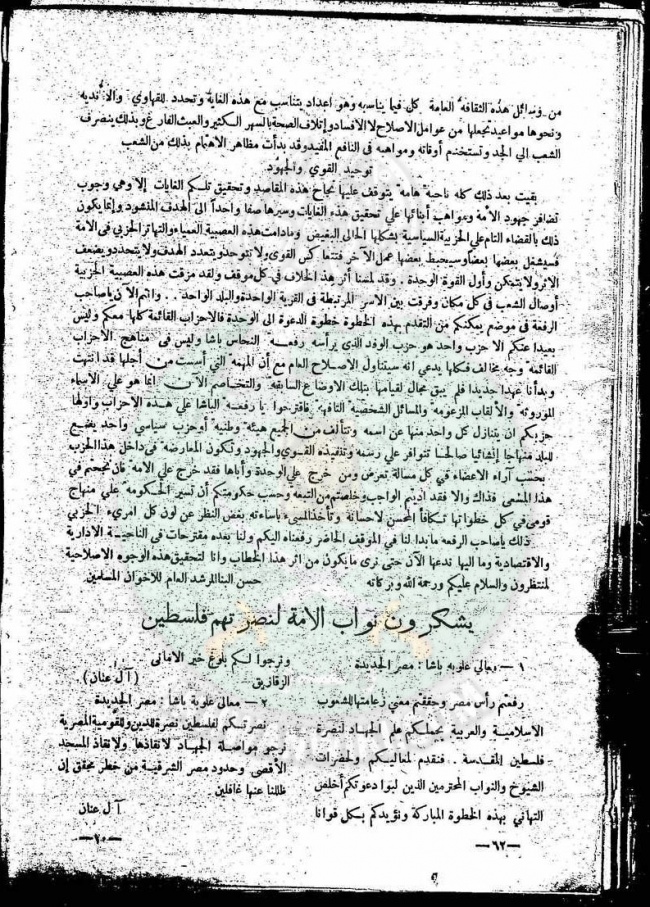 من وسائل هذه الثقافه العامة كل فيما يناسبه وهو اعداد يتناسب مع هذه الغاية وتحدد للقهاوي والانديه
ونحوها مواعيد تجعلها من عوامل الاصلاح لا الافساد واتلاف الصحة بالسهر الكثير والعبث الفارغ وبذلك ينصرف
الشعب الي الجد وتستخدم أوقاته ومواهبه فى النافع المفيد وقد بدأت مظاهر الاهتمام بذلك من الشعب
توحيد القوي والجهود
بقيت بعد ذلك كله ناحية هامة يتوقف عليها نجاح هذه المقاصد وتحقيق تلكم الغايات إلا وهي وجوب
تضافر جهود الأمة ومواهب أبنائها علي تحقيق هذه الغايات وسيرها صفا واحداً الى الهدف المنشود وإنما يكون
ذلك بالقضاء التام علي الحزبية السياسية بشكلها الحالى البغيض ومادامت هذه العصبية العمياء والتهاتر الحزبي فى الامة
فسيشغل بعضها بعضا وسيحبط بعضها عمل الآخر فتتعاكس القوى ولا تتوحد ويتعدد الهدف ولا يتحدد ويضعف
الاثر ولا يتمكن وأول القوة الوحدة . وقد لمسنا أثر هذا الخلاف في كل موقف ولقد مزقت هذه العصبية الحزبية
أوصال الشعب فى كل مكان وفرقت بين الاسر المرتبطة فى القرية الواحدة والبلد الواحد . . وانتم الآن ياصاحب
الرفعة فى موضع يمكنكم من التقدم بهذه الخطوة خطوة الدعوة الى الوحدة فالاحزاب القائمة كلها معكم وليس
بعيدا عنكم الا حزب واحد هو حزب الوفد الذى يرأسه رفعة النحاس باشا وليس فى مناهج الأحزاب
القائمة وجه يخالف فكلها يدعي انه سيتناول الاصلاح العام مع أن المهمة التي أسست من أجلها قد انتهت
وبدأنا عهدا جديدا فلم يبق مجال لقيامها بتلك الاوضاع السابقه والتخاصم الآن إنما هو علي الاسماء
الموروثه والالقاب المزعومه والمسائل الشخصية التافهة فاقترحوا يا رفعة الباشا علي هذه الاحزاب وأولها
حزبكم ان يتنازل كل واحد منها عن اسمه وتتألف من الجميع هيئة وطنيه أو حزب سياسي واحد يضع
للبلد منهاجا إنشائيا صالحا تتوافر علي رسمه وتنفيذه القوي والجهود وتكون المعارضة فى داخل هذا الحزب
بحسب آراء الاعضاء في كل مسالة تعرض ومن خرج علي الوحدة وأباها فقد خرج علي الامة فان نجحتم في
هذا المسعى فذاك والا فقد اديتم الواجب وخلصتم من التبعة وحسب حكومتكم أن تسير الحكومه علي منهاج
قومى في كل خطواتها تكافأ المحسن لاحسانه وتأخذ المسىء باساءته بغض النظر عن لون كل امريء الحزبي
ذلك ياصاحب الرفعه مابدا لنا في الموقف الحاضر رفعناه اليكم ولنا بعده مقترحات فى الناحية الادارية
والاقتصادية وما اليها ندعها الآن حتى نرى ما يكون من اثر هذا الخطاب وانا لتحقيق هذه الوجوه الاصلاحية
لمنتظرون والسلام عليكم ورحمة الله وبركاته حسن البنا المرشد العام للاخوان المسلمين
يشكرون نواب الامة لنصرتهم فلسطين
١ — معالي علوبه باشا : مصر الجديدة
رفعتم رأس مصر وحققتم معني زعامتها للشعوب
الاسلامية والعربية بحملكم علم الجهاد لنصرة
فلسطين المقدسة . . فنقدم لمعاليكم ولحضرات
الشيوخ والنواب المحترمين الذين لبوا دعوتكم أخلص
التهاني بهذه الخطوة المباركة ونؤيدكم بكل قوانا
ونرجوا لكم بلوغ خير الامانى
الزقازيق ( آل عنان )
٢ — معالى علوبة باشا : مصر الجديدة
نصرتكم لفلسطين نصرة للدين وللقومية المصرية
نرجو مواصلة الجهاد لانقاذها ولانقاذ المسجد
الأقصى وحدود مصر الشرقية من خطر محقق إن
ظللنا عنها غافلين
آل عنان
—٦٢—
—٢٠—